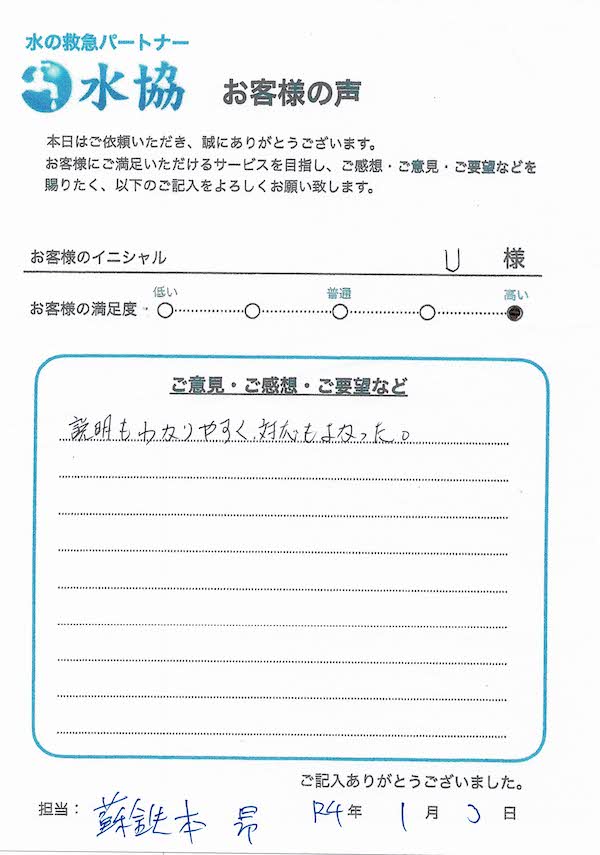 水の救急パートナー
水協 お客様の声
本日はご依頼いただき、誠にありがとうございます。
お客様にご満足いただけるサービスを目指し、ご感想・ご意見・ご要望などを
賜りたく、以下のご記入をよろしくお願い致します。
お客様のイニシャル U 様
低い 普通 高い
お客様の満足度
ご意見・ご感想・ご要望など
説明もわかりやすく、対応もよかった。
ご記入ありがとうございました。
担当: 蘇鉄本 昂 R4年 1月 3日